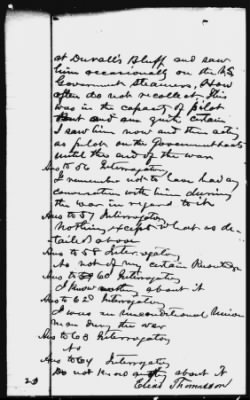 at Duvall's Bluff and saw
him occasionally on the U.S.
Government Steamers, How
often do not recollect. This
was in the capacity of pilot
and am quite certain
I saw him now and then acting
as pilot on the Government boats
until the end of the war
Ans to 56 Interrogatory
I remember not to have had any
conversation with him during
the war in regard to it
Ans to 57 Interrogatory
Nothing except what is de-
tailed above
Ans to 58 Interrogatory
As not of my certain
Ans to 60 Interrogatory
I know nothing about it
Ans to 62d Interrogatory
I was an unconditional Union
man during the war
Ans to 63 Interrogatory
Ans to 64 Interrogatory
Do not know about it
Thomasson